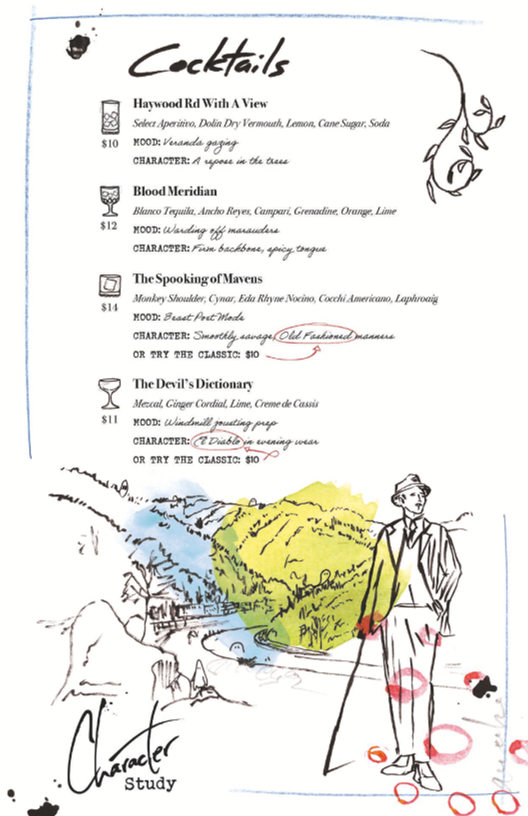 Cocktails
Haywood Rd With A View
Select Aperitivo, Dolin Dry Vermouth, Lemon, Cane Sugar, Soda
$10
MOOD: Veranda gazing
CHARACTER: A repose in the trees
Blood Meridian
Blanco Tequila, Ancho Reyes, Campari, Grenadine, Orange, Lime
$12
MOOD: Warding off marauders
CHARACTER: Firm backbone, spicy tongue
The Spooking of Mavens
Monkey Shoulder, Cynar, Eda Rhyne Nocino, Cocchi Americano, Laphroaig
$14
MOOD: Beast Poet Mode
CHARACTER: Smoothly savage, Old Fashioned manners
OR TRY THE CLASSIC: $10
The Devil's Dictionary
Mezcal, Ginger Cordial, Lime, Creme de Cassis
$11
MOOD: Windmill jousting prep
CHARACTER: El Diablo in evening wear
OR TRY THE CLASSIC: $10
Character
Study